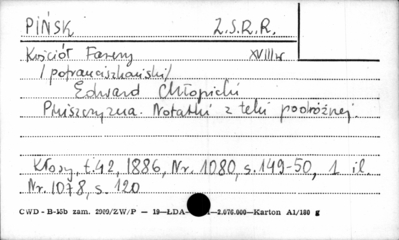 PIŃSK Z.S.R.R.
Kościół Farny XVIII w
/pofranciszkański/
Edward Chłopicki
Notatki z teki podróżnej.
Kłosy, t.42, 1886, Nr. 1080, s.149-50, 1 il.
Nr. 1078, s. 120
CWD - B-15b zam. 2909/ZW/P — 19—ŁDA- —2.076.000—Karton A1/180 g